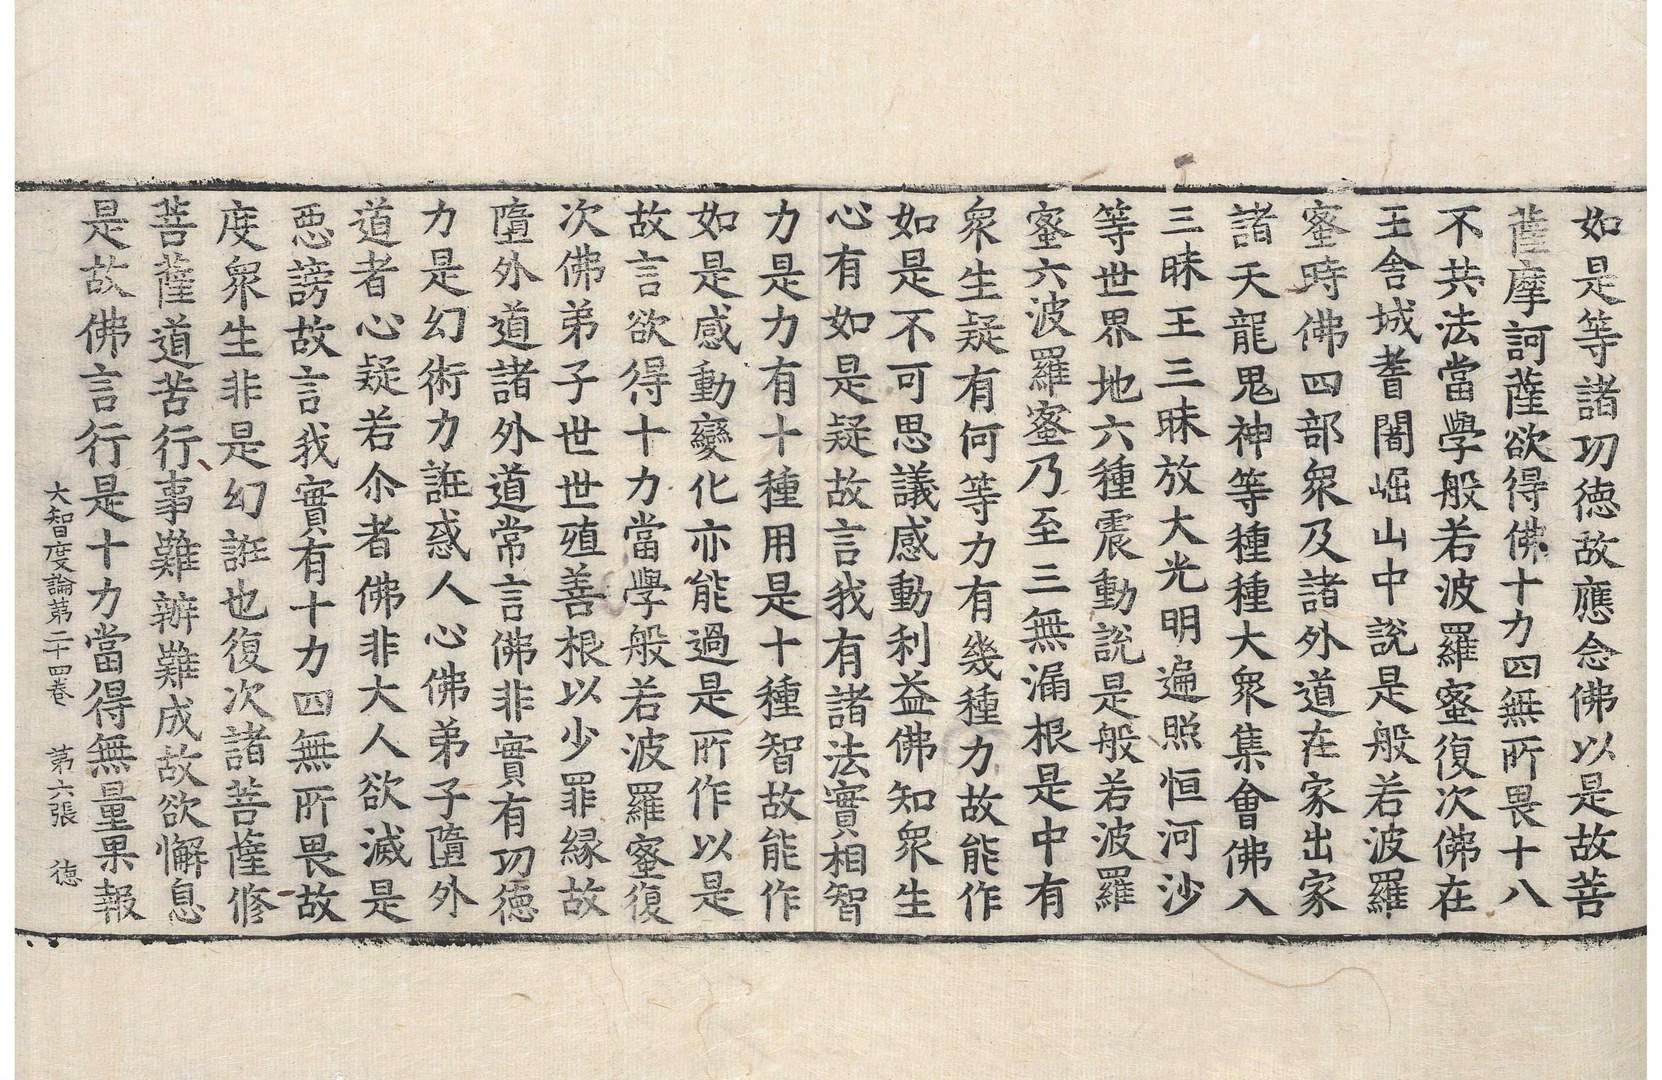 如是等諸功徳故應念佛以是故菩
薩摩訶薩欲得佛十力四無所畏十八
不共法當學般若波羅蜜復次佛在
王舍城耆闍崛山中說是般若波羅
蜜時佛四部衆及諸外道在家出家
諸天龍鬼神等種種大衆集會佛入
三昧王三昧放大光明遍照恒河沙
等世界地六種震動說是般若波羅
蜜六波羅蜜乃至三無漏根是中有
衆生疑有何等力有幾種力故能作
如是不可思議感動利益佛知衆生
心有如是疑故言我有諸法實相智
力是力有十種用是十種智故能作
如是感動變化亦能過是所作以是
故言欲得十力當學般若波羅蜜復
次佛弟子世世殖善根以少罪縁故
墮外道諸外道常言佛非實有功徳
力是幻術力誑惑人心佛弟子墮外
道者心疑若尒者佛非大人欲滅是
惡謗故言我實有十力四無所畏故
度衆生非是幻誑也復次諸菩薩修
菩薩道苦行事難辦難成故欲懈息
是故佛言行是十力當得無量果報
大智度論第二十四卷 第六張 徳